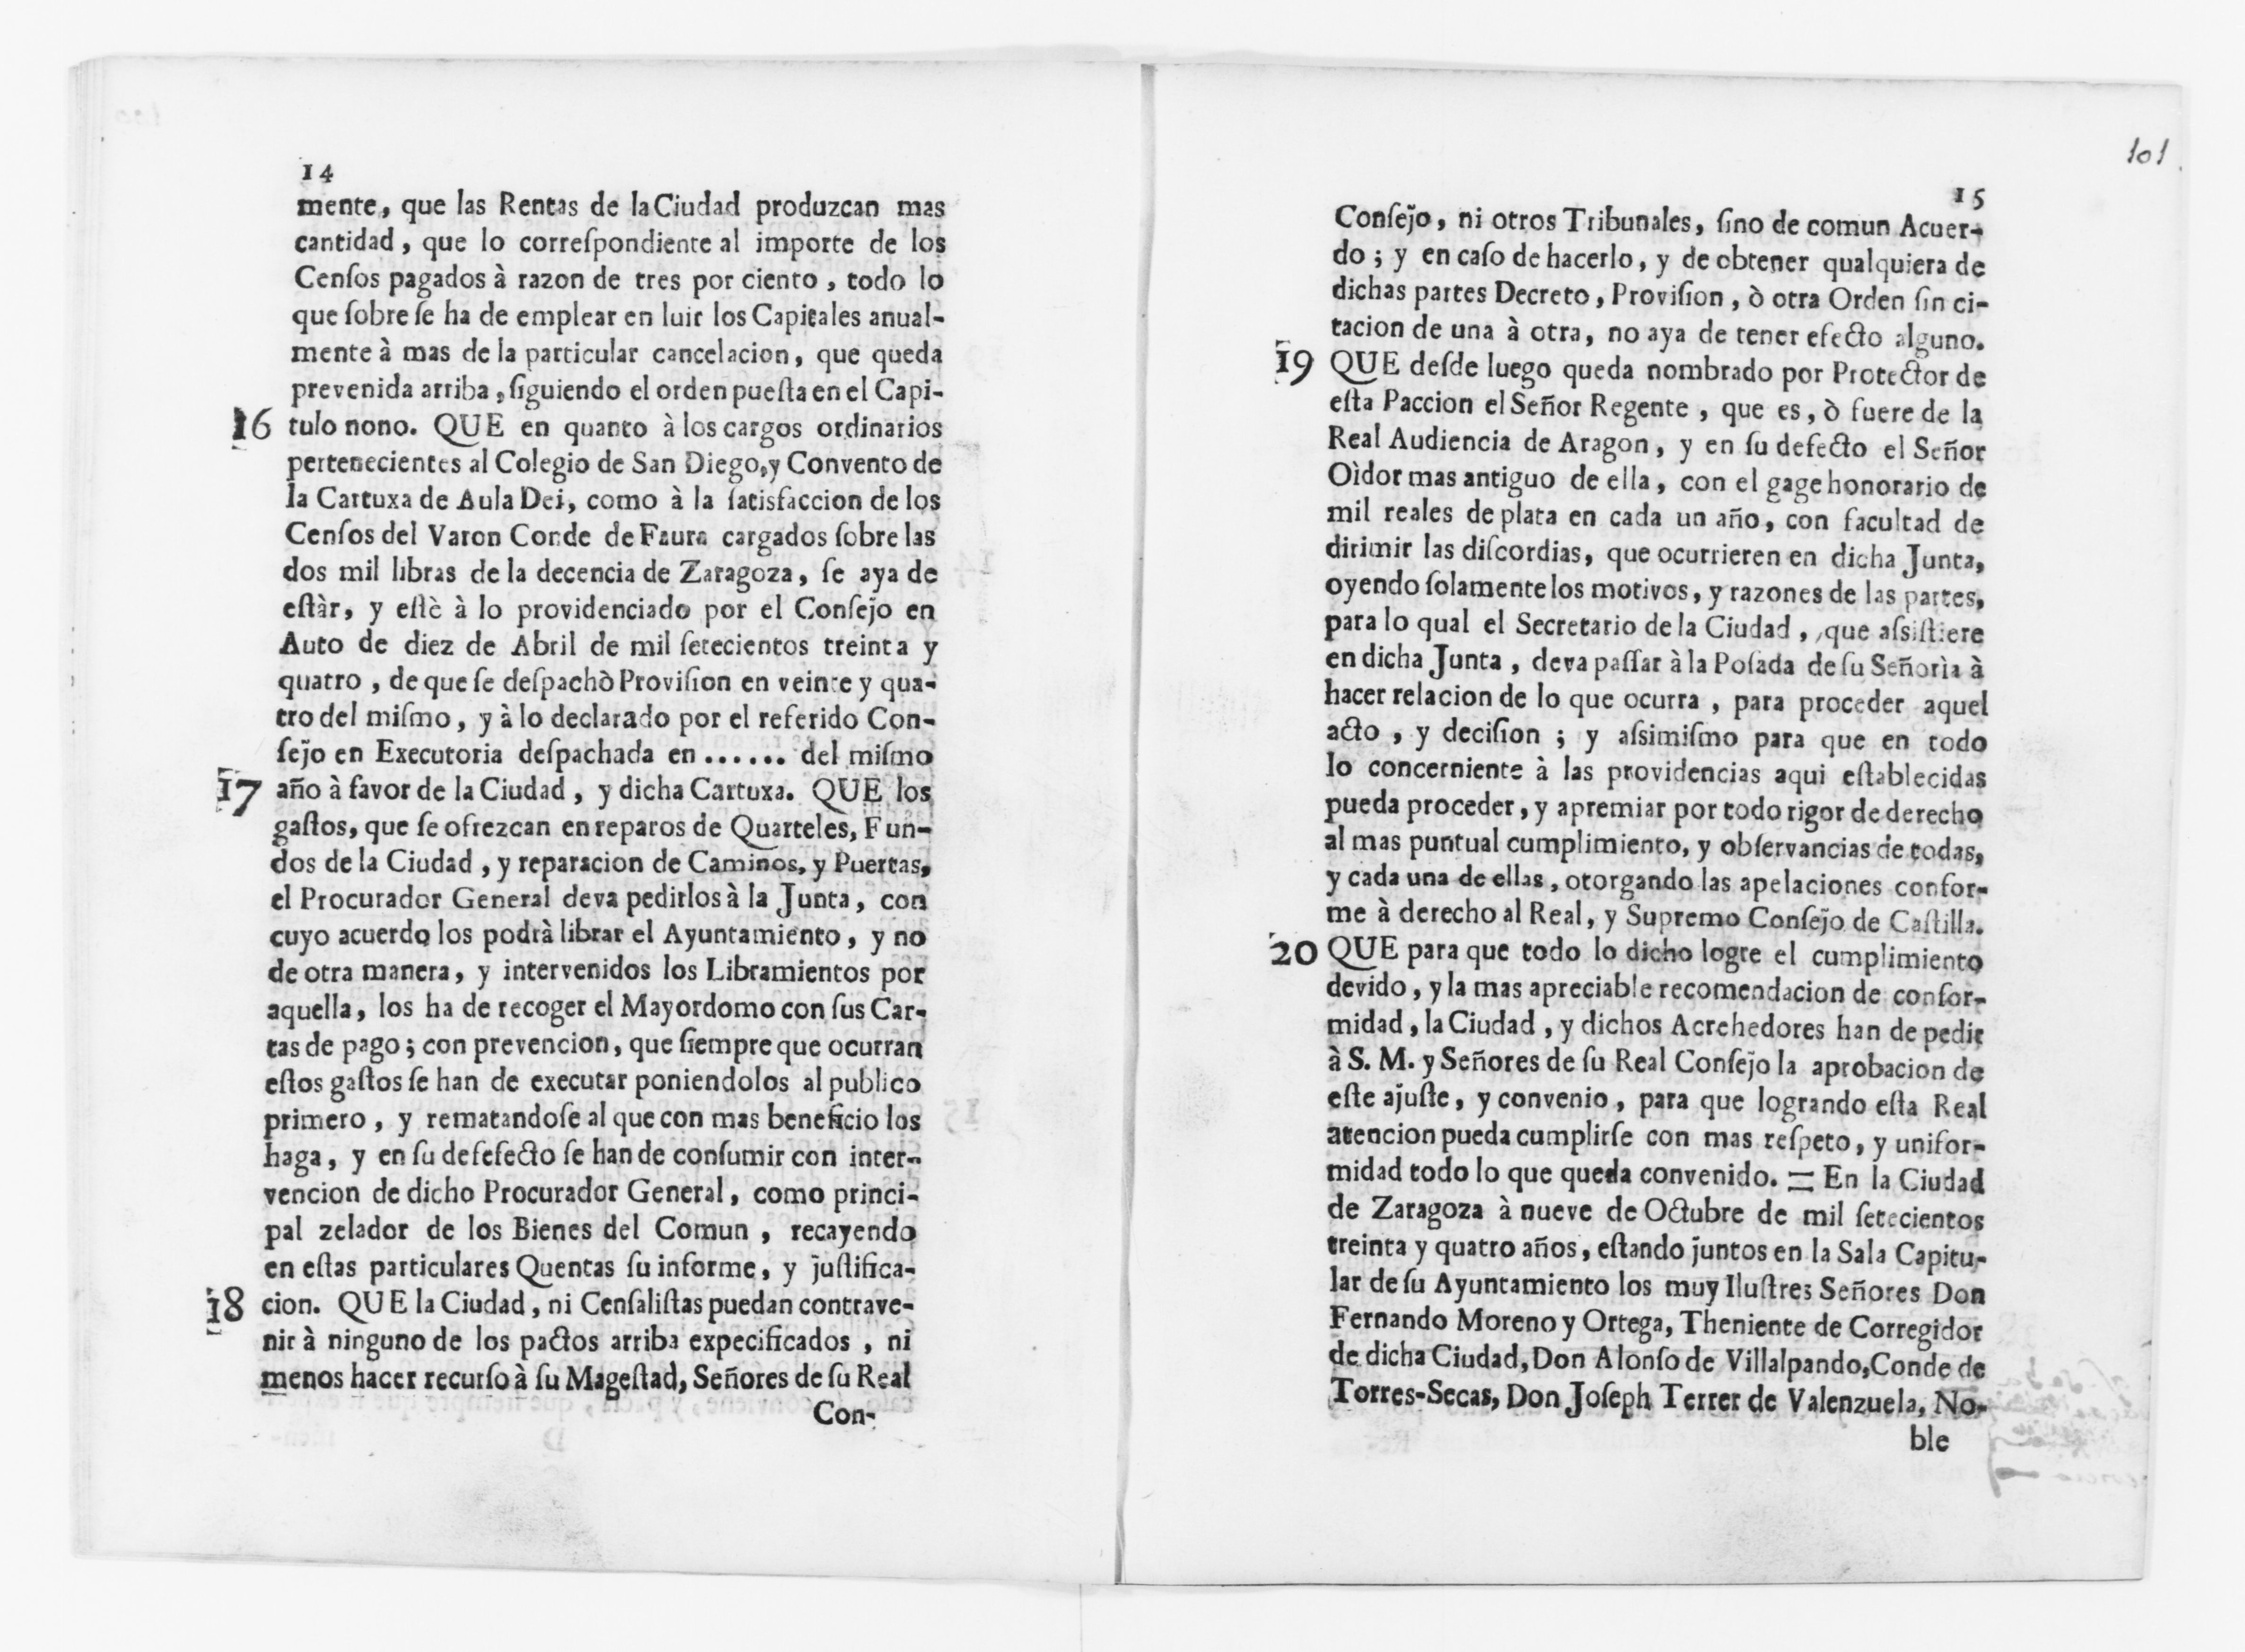 14
mente, que las Rentas de la Ciudad produzcan mas
cantidad, que lo correſpondiente al importe de los
Cenſos pagados à razon de tres por ciento, todo lo
que ſobre ſe ha de emplear en luir los Capitales anual-
mente à mas de la particular cancelacion, que queda
prevenida arriba, ſiguiendo el orden pueſta en el Capi-
16 tulo nono. QUE en quanto à los cargos ordinarios
pertenecientes al Colegio de San Diego, y Convento de
la Cartuxa de Aula Dei, como à la ſatisfaccion de los
Cenſos del Varon Conde de Faura cargados ſobre las
dos mil libras de la decencia de Zaragoza, ſe aya de
eſtàr, y eſtè à lo providenciado por el Conſejo en
Auto de diez de Abril de mil ſetecientos treinta y
quatro, de que ſe deſpachò Proviſion en veinte y qua-
tro del miſmo, y à lo declarado por el referido Con-
ſejo en Executoria deſpachada en ...... del miſmo
17 año à favor de la Ciudad, y dicha Cartuxa. QUE los
gaſtos, que ſe ofrezcan en reparos de Quarteles, Fun-
dos de la Ciudad, y reparacion de Caminos, y Puertas,
el Procurador General deva pedirlos à la Junta, con
cuyo acuerdo los podrà librar el Ayuntamiento, y no
de otra manera, y intervenidos los Libramientos por
aquella, los ha de recoger el Mayordomo con ſus Car-
tas de pago; con prevencion, que ſiempre que ocurran
eſtos gaſtos ſe han de executar poniendolos al publico
primero, y rematandoſe al que con mas beneficio los
haga, y en ſu defefecto ſe han de conſumir con inter-
vencion de dicho Procurador General, como princi-
pal zelador de los Bienes del Comun, recayendo
en eſtas particulares Quentas ſu informe, y juſtifica-
18 cion. QUE la Ciudad, ni Cenſaliſtas puedan contrave-
nir à ninguno de los pactos arriba expecificados, ni
menos hacer recurſo à ſu Mageſtad, Señores de ſu Real
Con-
101
15
Conſejo, ni otros Tribunales, ſino de comun Acuer-
do; y en caſo de hacerlo, y de obtener qualquiera de
dichas partes Decreto, Proviſion, ò otra Orden ſin ci-
tacion de una à otra, no aya de tener efecto alguno.
19 QUE deſde luego queda nombrado por Protector de
eſta Paccion el Señor Regente, que es, ò fuere de la
Real Audiencia de Aragon, y en ſu defecto el Señor
Oìdor mas antiguo de ella, con el gage honorario de
mil reales de plata en cada un año, con facultad de
dirimir las diſcordias, que ocurrieren en dicha Junta,
oyendo ſolamente los motivos, y razones de las partes,
para lo qual el Secretario de la Ciudad, que aſsiſtiere
en dicha Junta, deva paſſar à la Poſada de ſu Señorìa à
hacer relacion de lo que ocurra, para proceder aquel
acto, y deciſion; y aſsimiſmo para que en todo
lo concerniente à las providencias aqui eſtablecidas
pueda proceder, y apremiar por todo rigor de derecho
al mas puntual cumplimiento, y obſervancias de todas,
y cada una de ellas, otorgando las apelaciones confor-
me à derecho al Real, y Supremo Conſejo de Caſtilla.
20 QUE para que todo lo dicho logre el cumplimiento
devido, y la mas apreciable recomendacion de confor-
midad, la Ciudad, y dichos Acrehedores han de pedir
à S. M. y Señores de ſu Real Conſejo la aprobacion de
eſte ajuſte, y convenio, para que logrando eſta Real
atencion pueda cumplirſe con mas reſpeto, y unifor-
midad todo lo que queda convenido. = En la Ciudad
de Zaragoza à nueve de Octubre de mil ſetecientos
treinta y quatro años, eſtando juntos en la Sala Capitu-
lar de ſu Ayuntamiento los muy Iluſtres Señores Don
Fernando Moreno y Ortega, Theniente de Corregidor
de dicha Ciudad, Don Alonſo de Villalpando, Conde de
Torres-Secas, Don Joſeph Terrer de Valenzuela, No-
ble